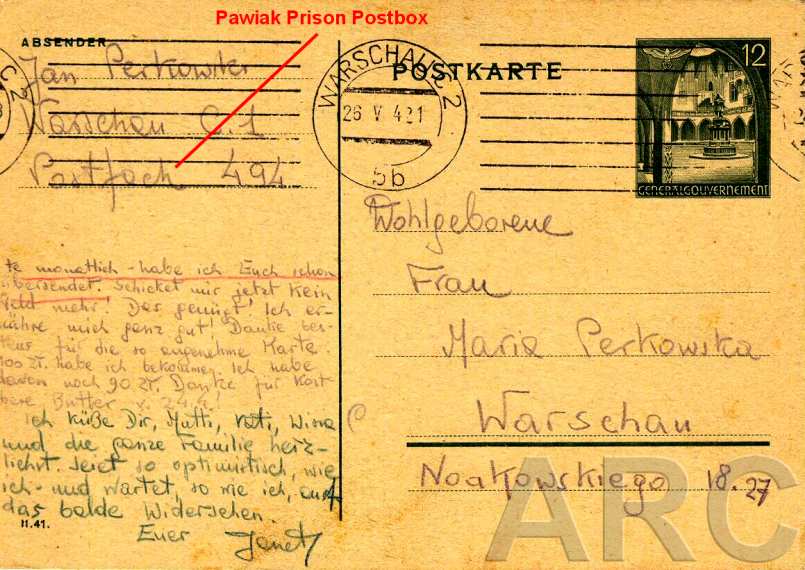 Pawiak Prison Postbox
ABSENDER
Jan Perkowski
Warschau C.1
Postfach 494
WARSCHAU C 2
26 V 42 21
5b
POSTKARTE
12
GENERALGOUVERNEMENT
Wohlgeborene
Frau
Maria Perkowska
Warschau
Noakowskiego 18.27
te monatlich - habe ich Euch schon
übersendet. Schicket mir jetzt kein
Geld mehr. Das genügt! Ich er-
nähre mich ganz gut! Danke bes-
tens für die so angenehme Karte.
100 zł. habe ich bekommen. Ich habe
davon noch 90 zł. Danke für kost
bare Butter v. 24.4!
Ich küße Dir, Mutti, Vati,
und die ganze Familie herz-
lichst. Seiet so optimistisch, wie
ich - und wartet, so wie ich, auf
das balde Widersehen.
Euer
II.41.
ARC